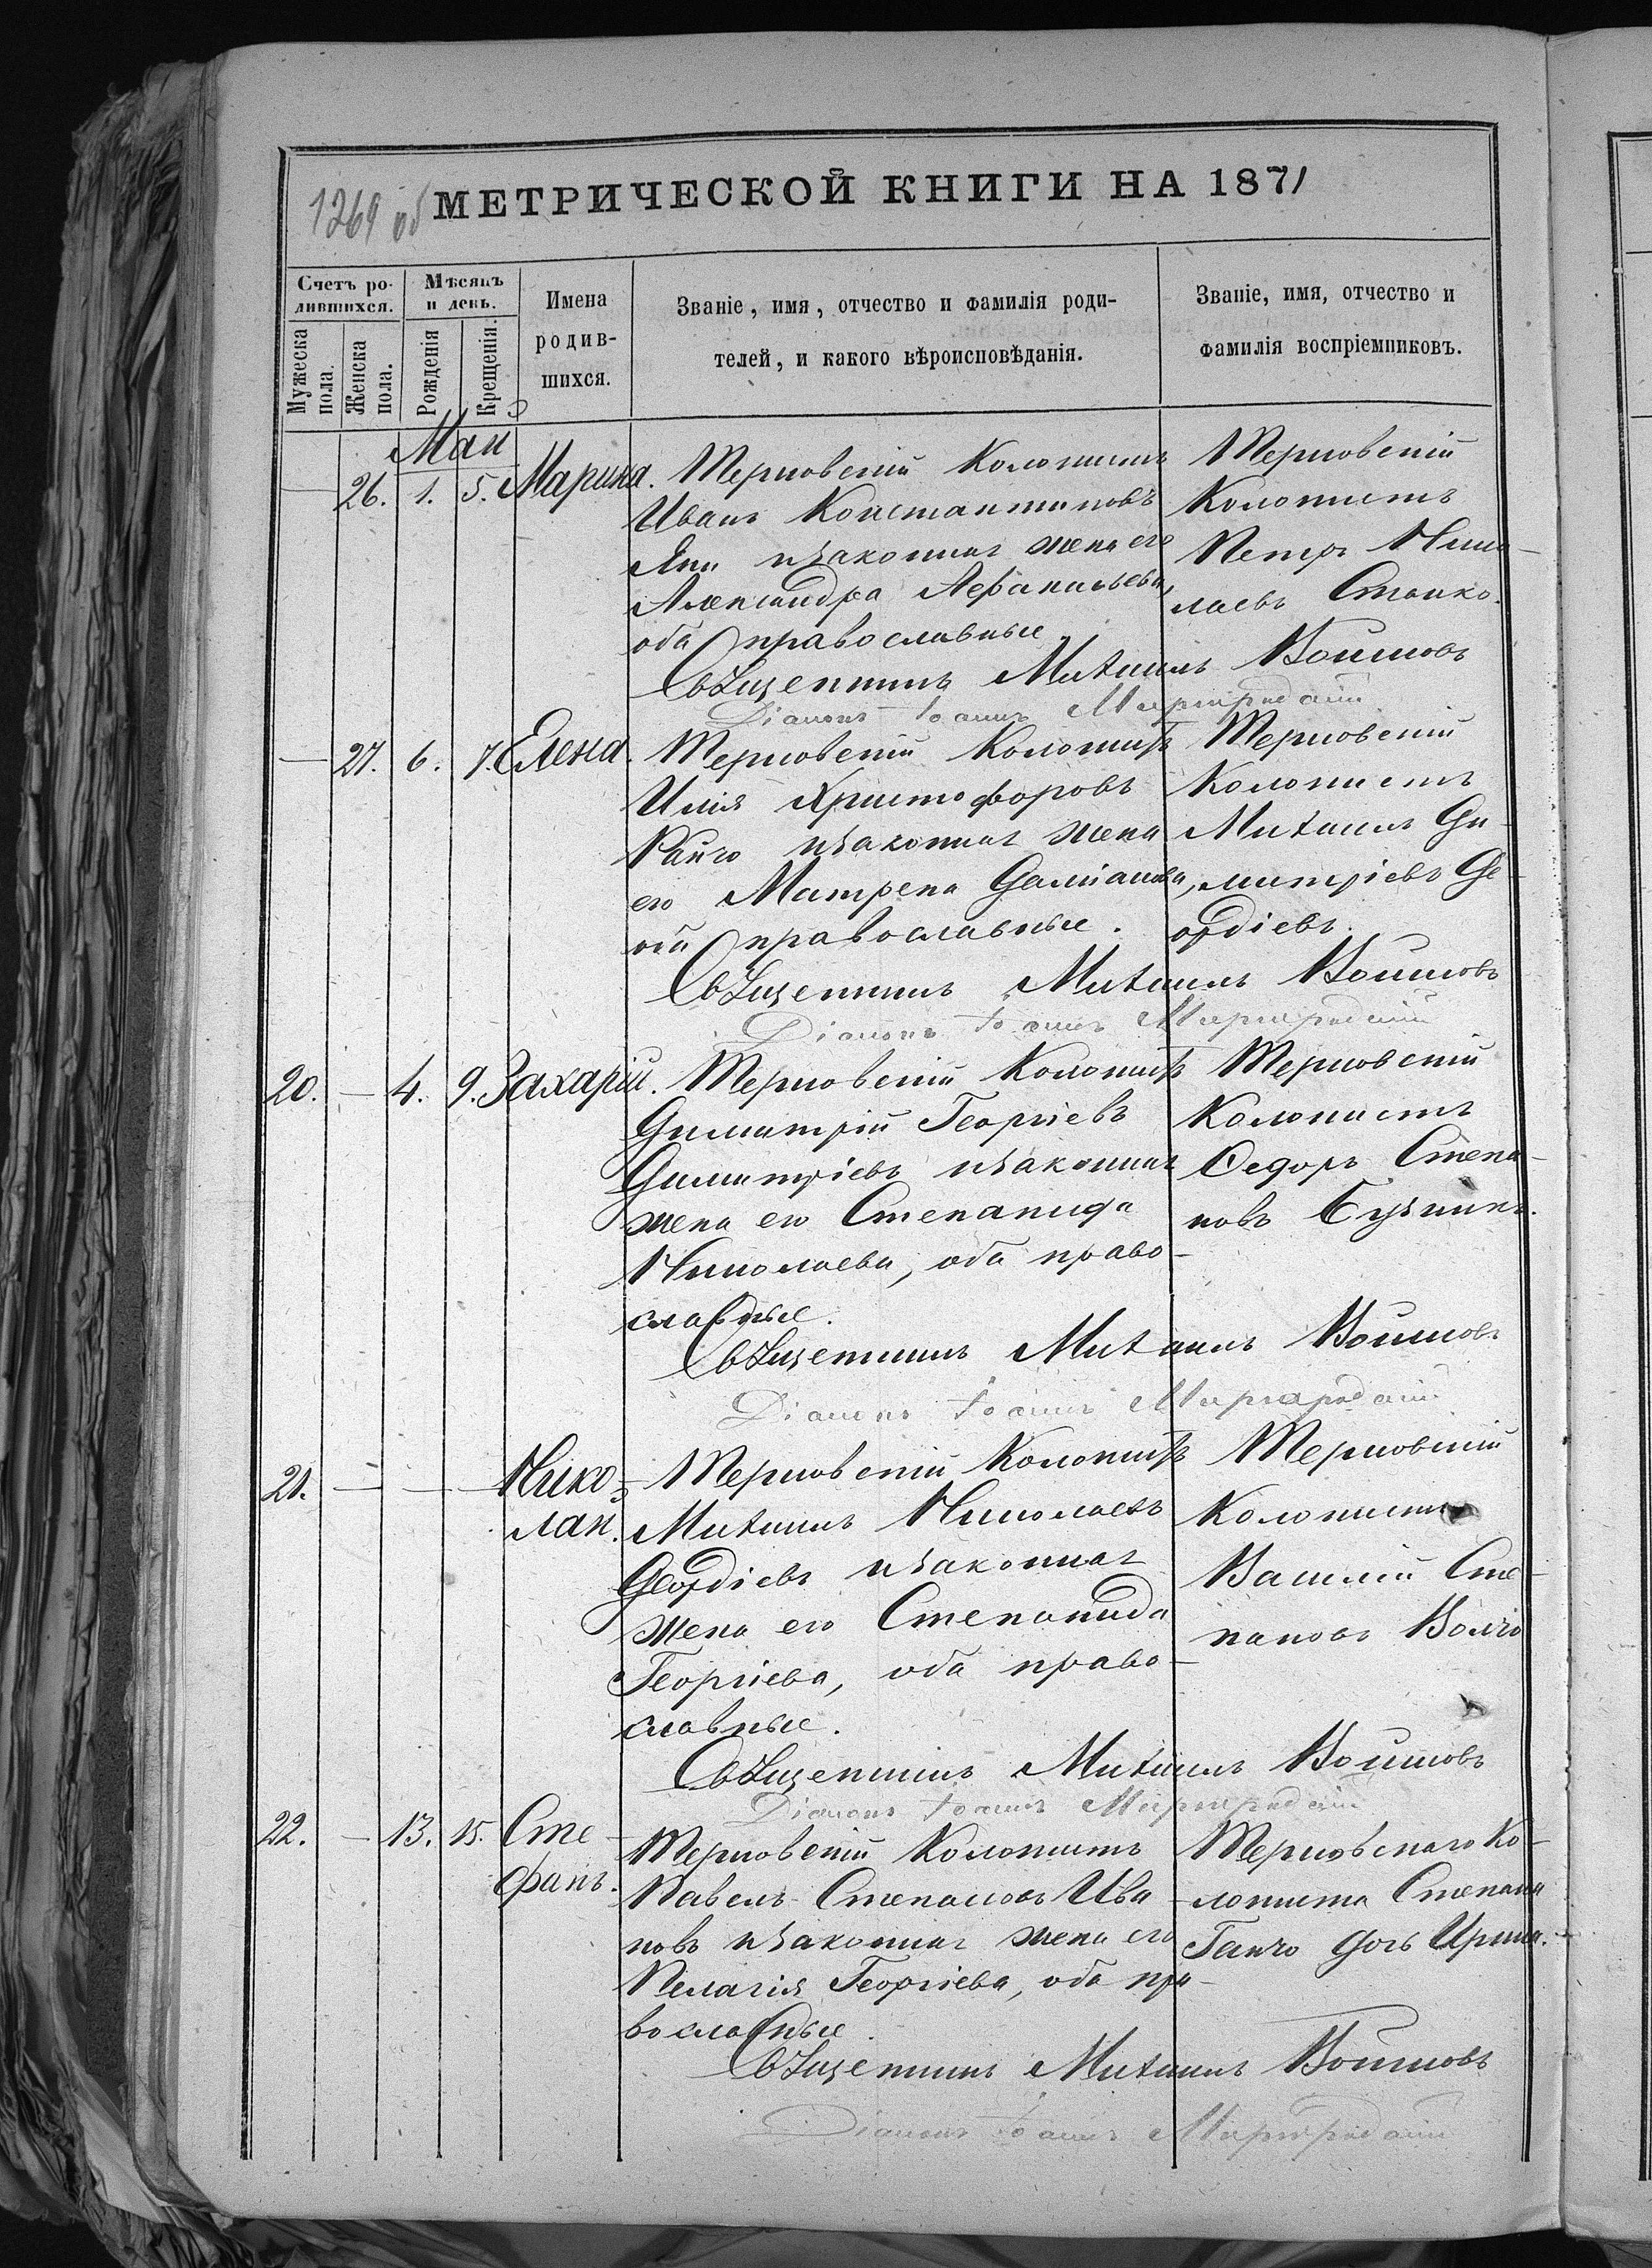 1269 об
МЕТРИЧЕСКОЙ КНИГИ НА 1871
Счетъ ро-
дившихся.
Мужеска пола.
Женска пола.
Мѣсяцъ
и день.
Рожденія
Крещенія.
Имена
родив-
шихся.
Званіе, имя, отчество и фамилія роди-
телей, и какого вѣроисповѣданія.
Званіе, имя, отчество и
фамилія воспріемниковъ.
Май
— 26. 1. 5. Марина.
Терновскій Колонистъ
Иванъ Константиновъ
Яни и законная жена его
Александра Афанасьева,
оба православные
Терновскій
Колонистъ
Петръ Нико-
лаевъ Станко.
Священникъ Михаилъ Войновъ
Діаконъ Іоаннъ
— 27. 6. 7. Елена.
Терновскій Колонистъ
Илія Христофоровъ
Райчо и законная жена
его Матрена Даміанова,
оба православные.
Терновскій
Колонистъ
Михаилъ Ди-
митріевъ Де-
ордіевъ.
Священникъ Михаилъ Войновъ
Діаконъ Іоаннъ
20. — 4. 9. Захарій.
Терновскій Колонистъ
Димитрій Георгіевъ
Димитріевъ и законная
жена его Степанида
Николаева, оба право-
славные.
Терновскій
Колонистъ
Ѳедоръ Степа-
новъ
Священникъ Михаилъ Войновъ
Діаконъ Іоаннъ
21. — — — Нико-
лай.
Терновскій Колонистъ
Михаилъ Николаевъ
Деордіевъ и законная
жена его Степанида
Георгіева, оба право-
славные.
Терновскій
Колонистъ
Василій Сте-
пановъ Волчо
Священникъ Михаилъ Войновъ
Діаконъ Іоаннъ
22. — 13. 15. Сте-
фанъ.
Терновскій Колонистъ
Павелъ Степановъ Ива-
новъ и законная жена его
Пелагія Георгіева, оба пра-
вославные.
Терновскаго Ко-
лониста Степана
Ганчо дочь Ирина.
Священникъ Михаилъ Войновъ
Діаконъ Іоаннъ